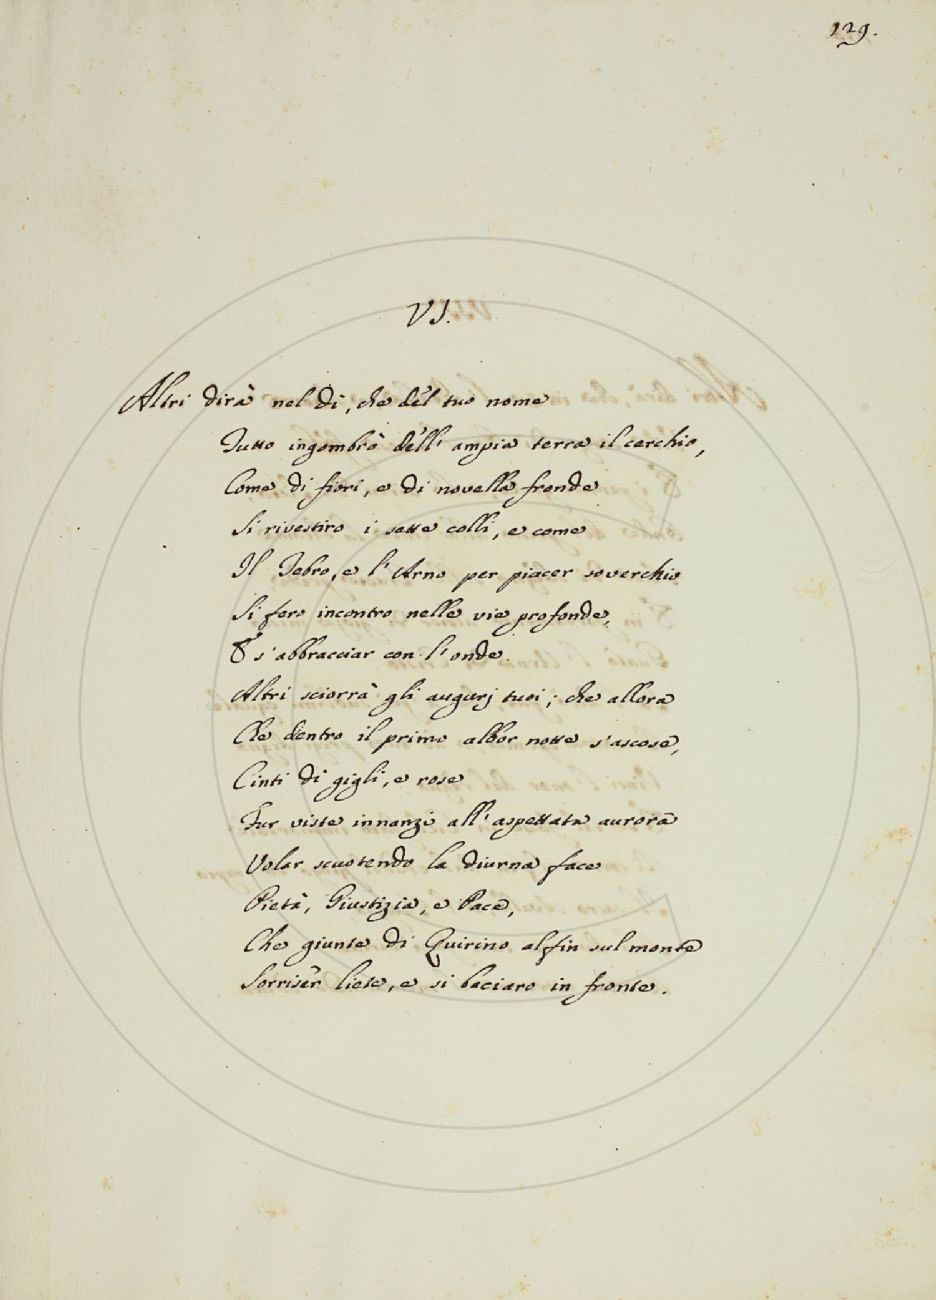 129.
VI.
Altri dirà nel dì, che del tuo nome
Tutto ingombrò dell' ampia terra il cerchio,
Come di fiori, e di novelle fronde
Si rivestiro i sette colli, e come
Il Tebro, e l' Arno per piacer soverchio
Si fero incontro nelle vie profonde,
E s' abbracciar con l' onde.
Altri sciorrà gli augurj tuoi; che allora
Che dentro il primo albor notte s' ascose,
Cinti di gigli, e rose
Fur viste innanzi all' aspettata aurora
Volar scuotendo la diurna face
Pietà, Giustizia, e Pace,
Che giunte di Quirino alfin sul monte
Sorriser liete, e si baciaro in fronte.